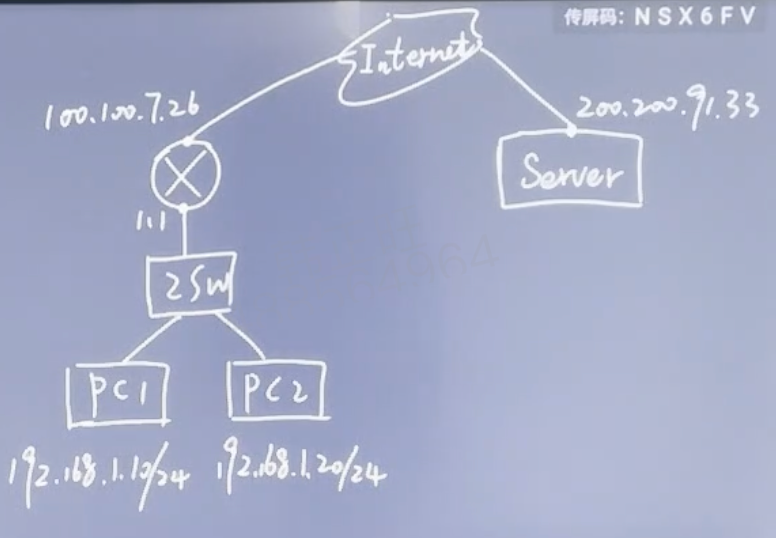 传屏码: NSX6FV
Internet
100.100.7.26
200.200.91.33
Server
1.1
2SW
PC1
PC2
192.168.1.10/24
192.168.1.20/24